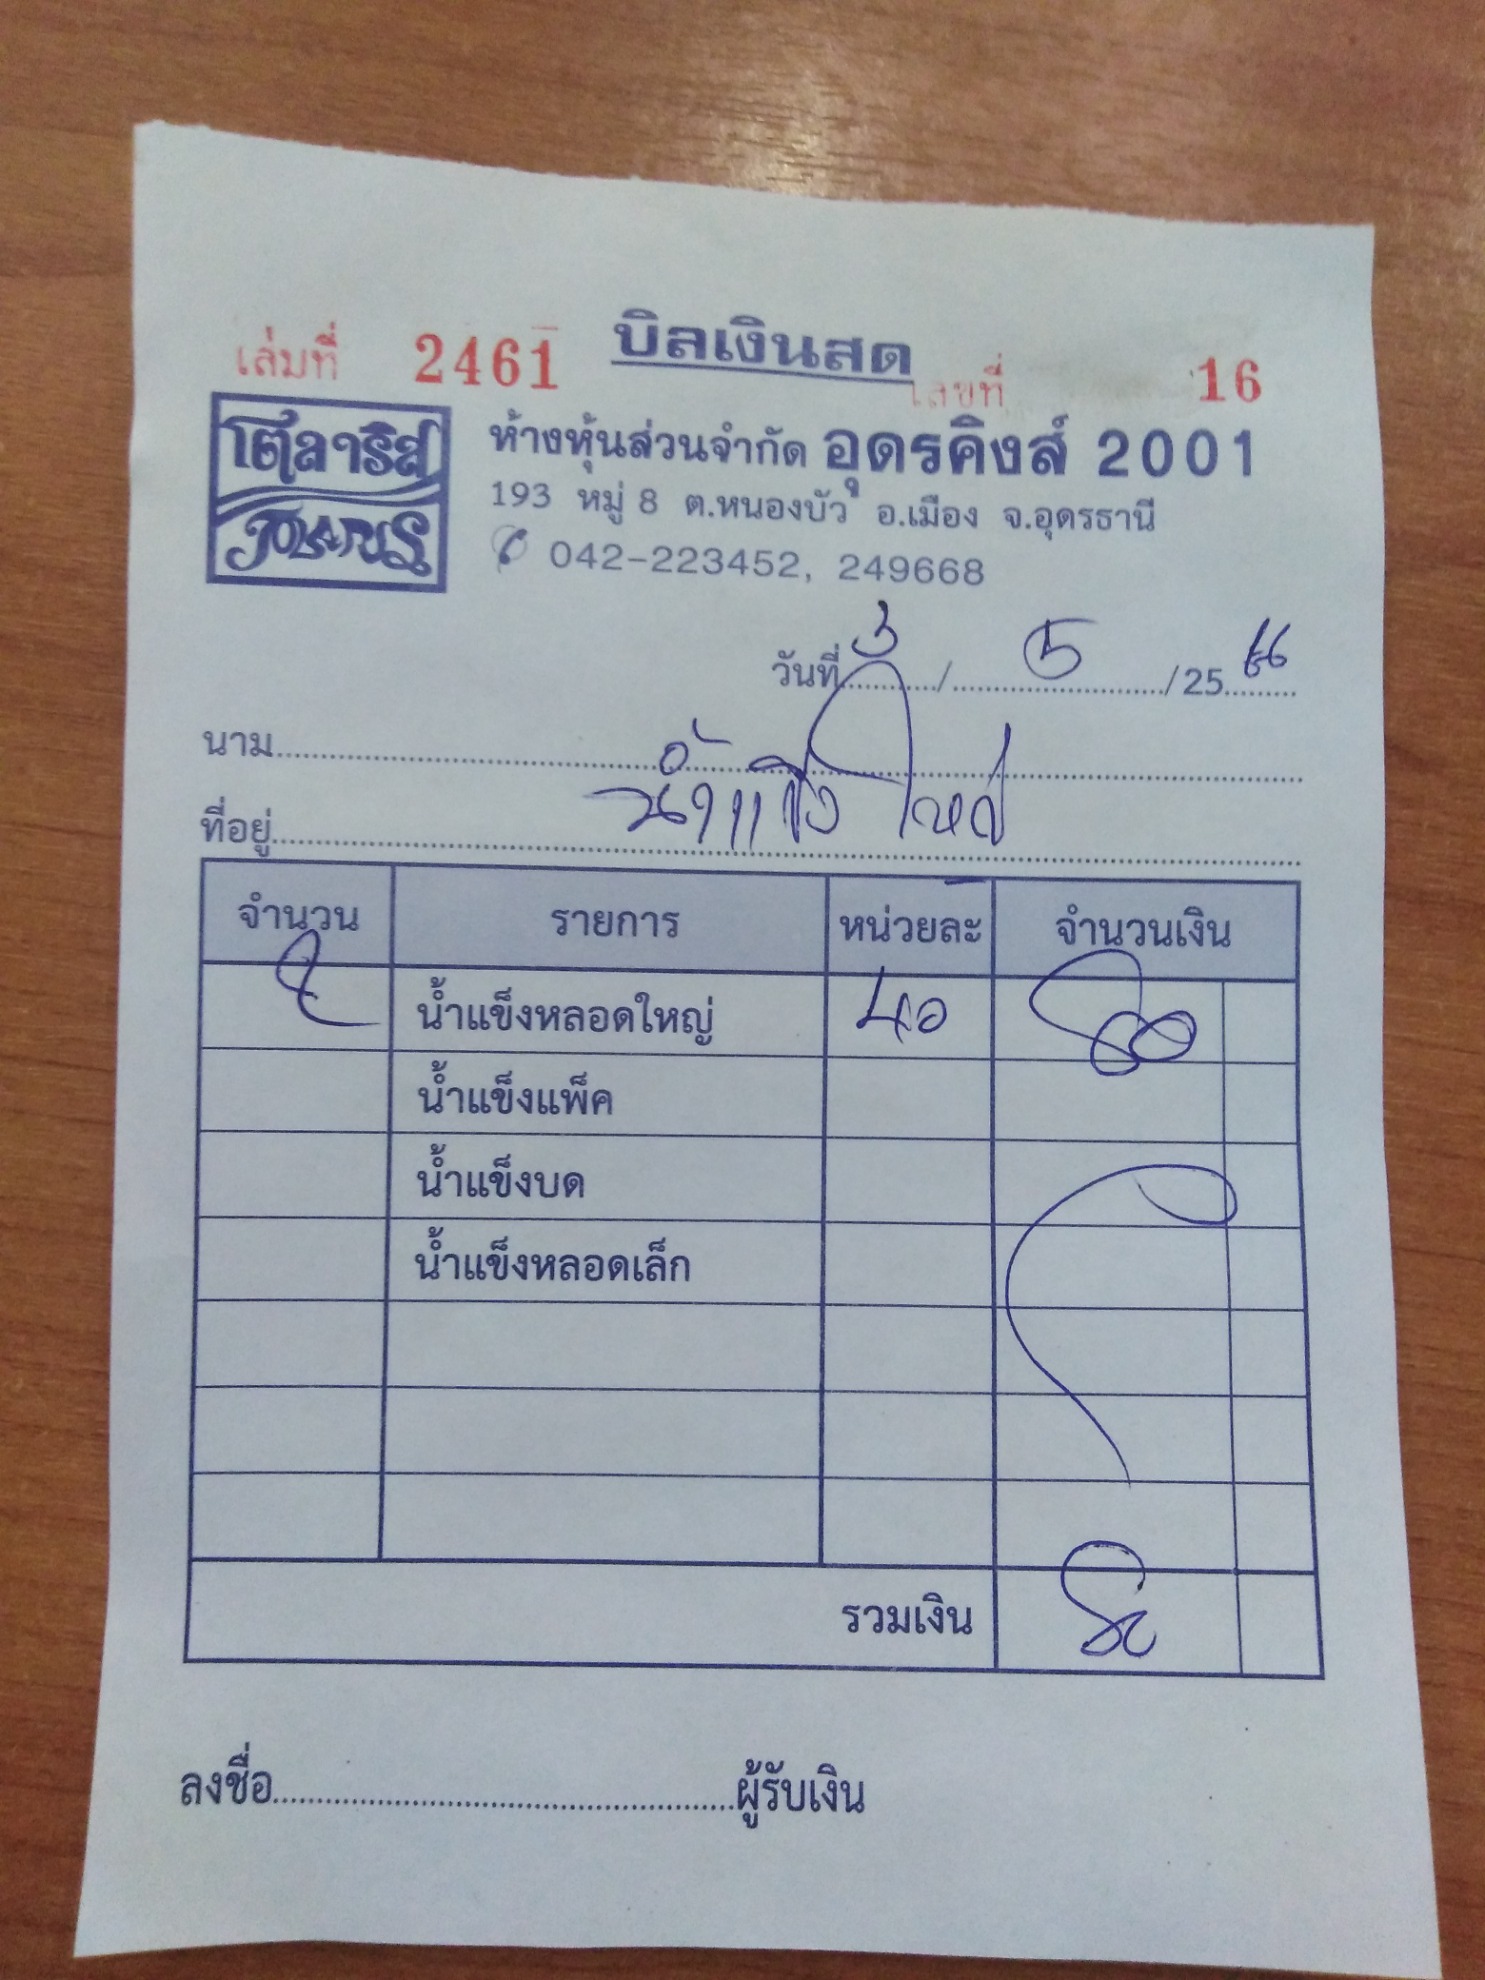 บิลเงินสด
เล่มที่ 2461 เลขที่ 16
โพลาริส
ห้างหุ้นส่วนจำกัด อุดรคิงส์ 2001
193 หมู่ 8 ต.หนองบัว อ.เมือง จ.อุดรธานี
042-223452, 249668
วันที่ 3 / 5 / 25 66
นาม
น้ำแข็งใหญ่
ที่อยู่
จำนวน รายการ หน่วยละ จำนวนเงิน
2 น้ำแข็งหลอดใหญ่ 40 80
น้ำแข็งแพ็ค
น้ำแข็งบด
น้ำแข็งหลอดเล็ก
รวมเงิน 80
ลงชื่อ ผู้รับเงิน